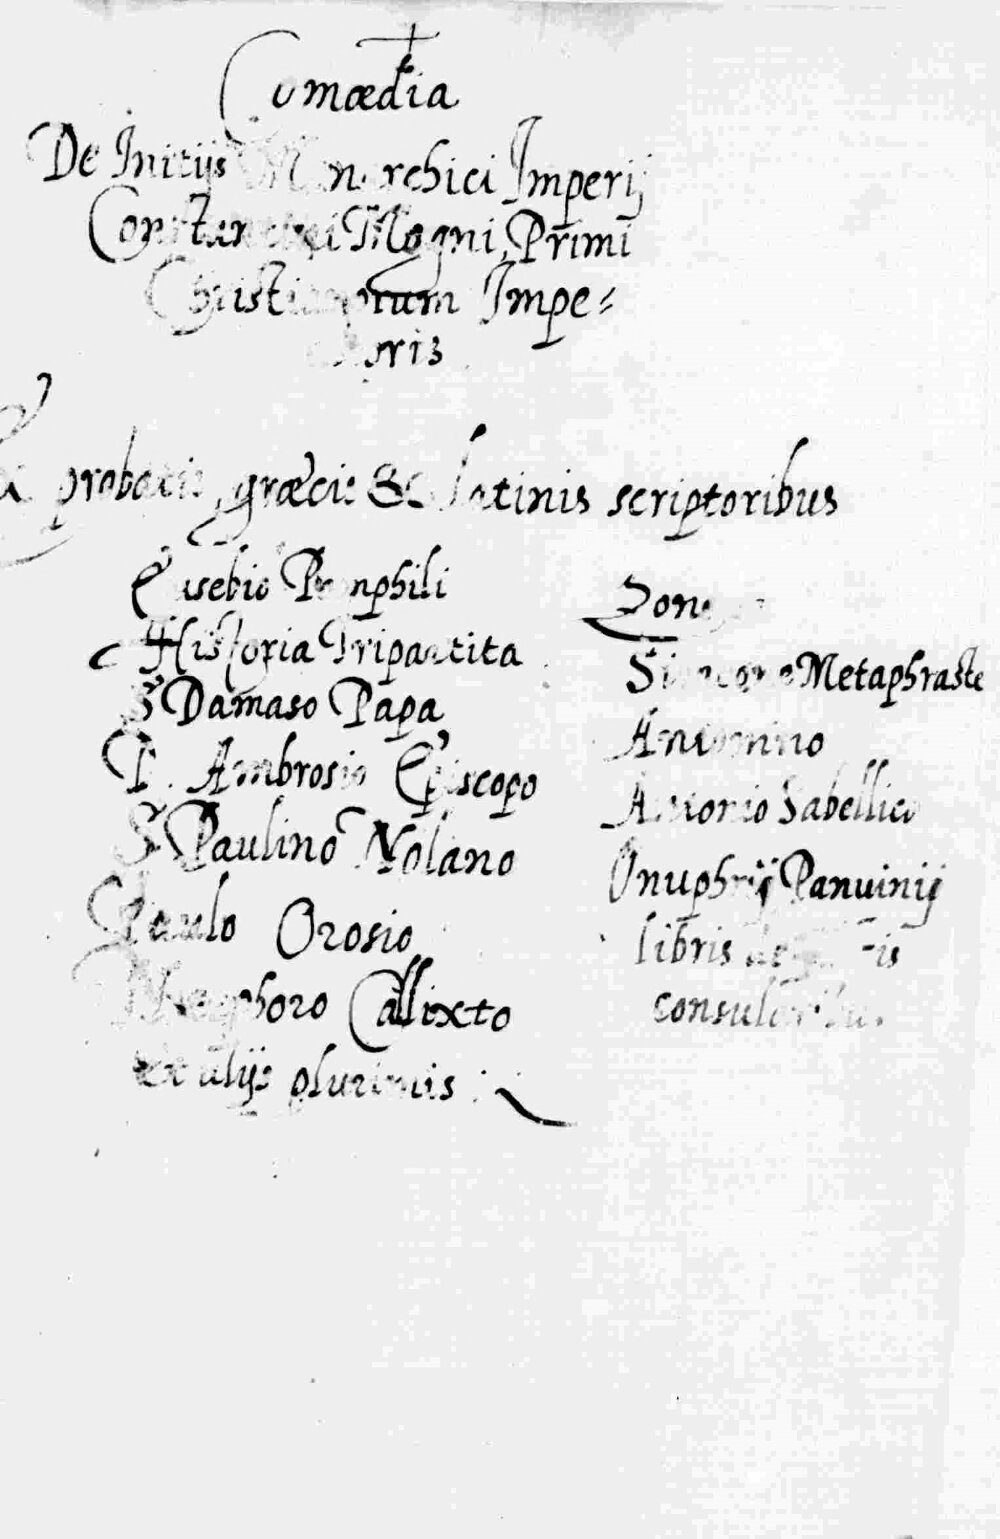 Comœdia
De Initijs Monarchici Imperij
Constantini Magni, Primi
Christianorum Impe-
toris
Ex probatis, græcis & latinis scriptoribus
Eusebio Pamphili
Historia Tripartita
S Damaso Papa
D. Ambrosio Episcopo
S Paulino Nolano
Paulo Orosio
Nicephoro Callixto
et alijs plurimis
Zona
Simeone Metaphraste
Antonino
Antonio Sabellico
Onuphrij Panuinij
libris de
consularibus